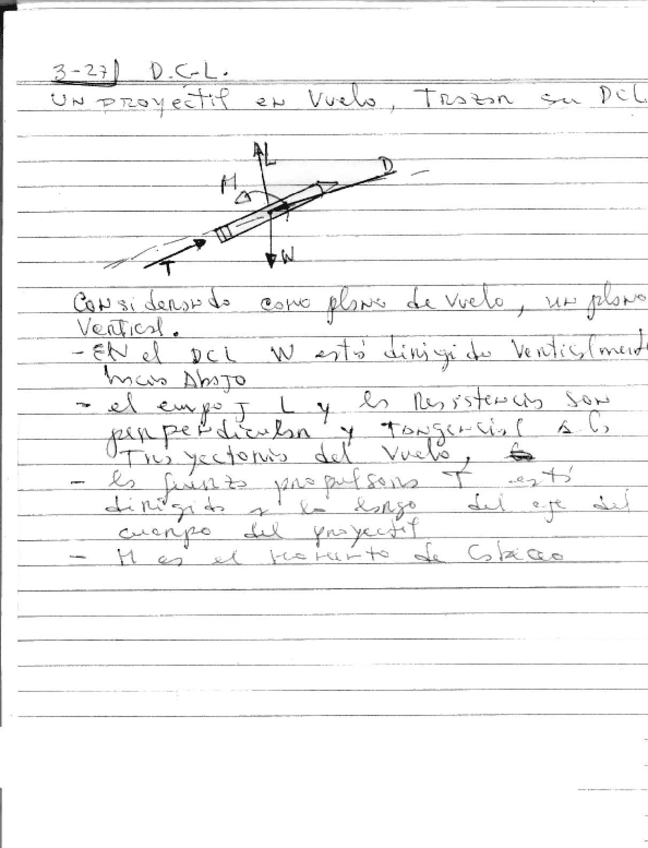 3-27) D.C.L.
UN proyectil en Vuelo, Trazar su DCL
L
D
M
W
T
Considerando como plano de vuelo, un plano
Vertical.
- EN el DCL W está dirigido Verticalment
hacia Abajo
- el empuj L y la Resistencia son
perpendicular y Tangencial a la
Trayectoria del Vuelo,
- la fuerza propulsora T está
dirigida a lo largo del eje del
cuerpo del proyectil
- M es el momento de Cabeceo